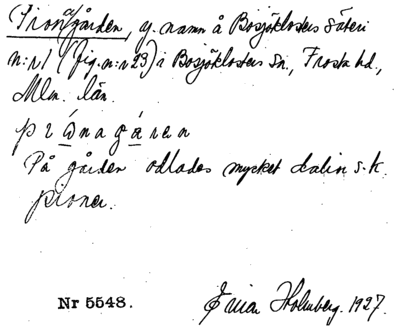 Pionagården, y. namn å Bosjöklosters säteri
n:r 1 (fig. n:r 23) i Bosjöklosters sn., Frosta hd.,
Mlm. län.
På gården odlades mycket s.k.
pioner.
Nr 5548. Holmberg. 1927.